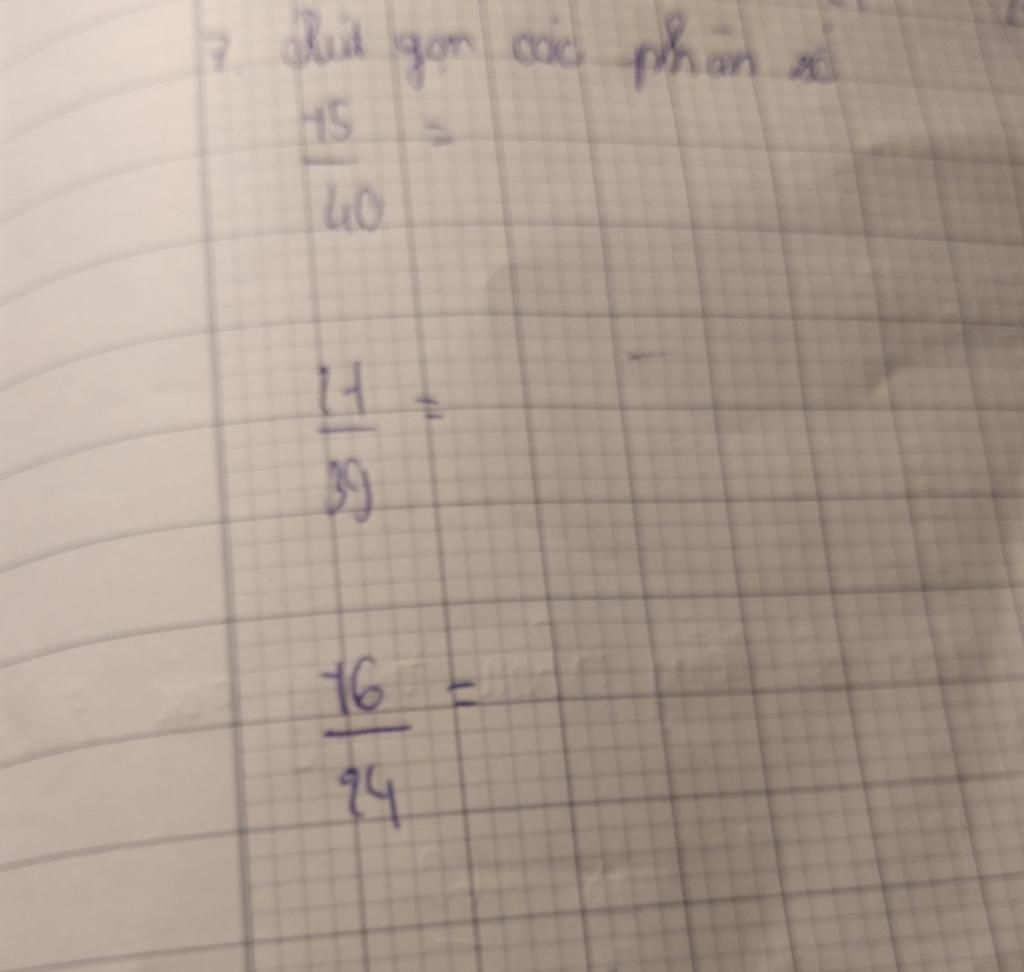 7. Rút gọn các phân số
15 =
40
21 =
39
16 =
24